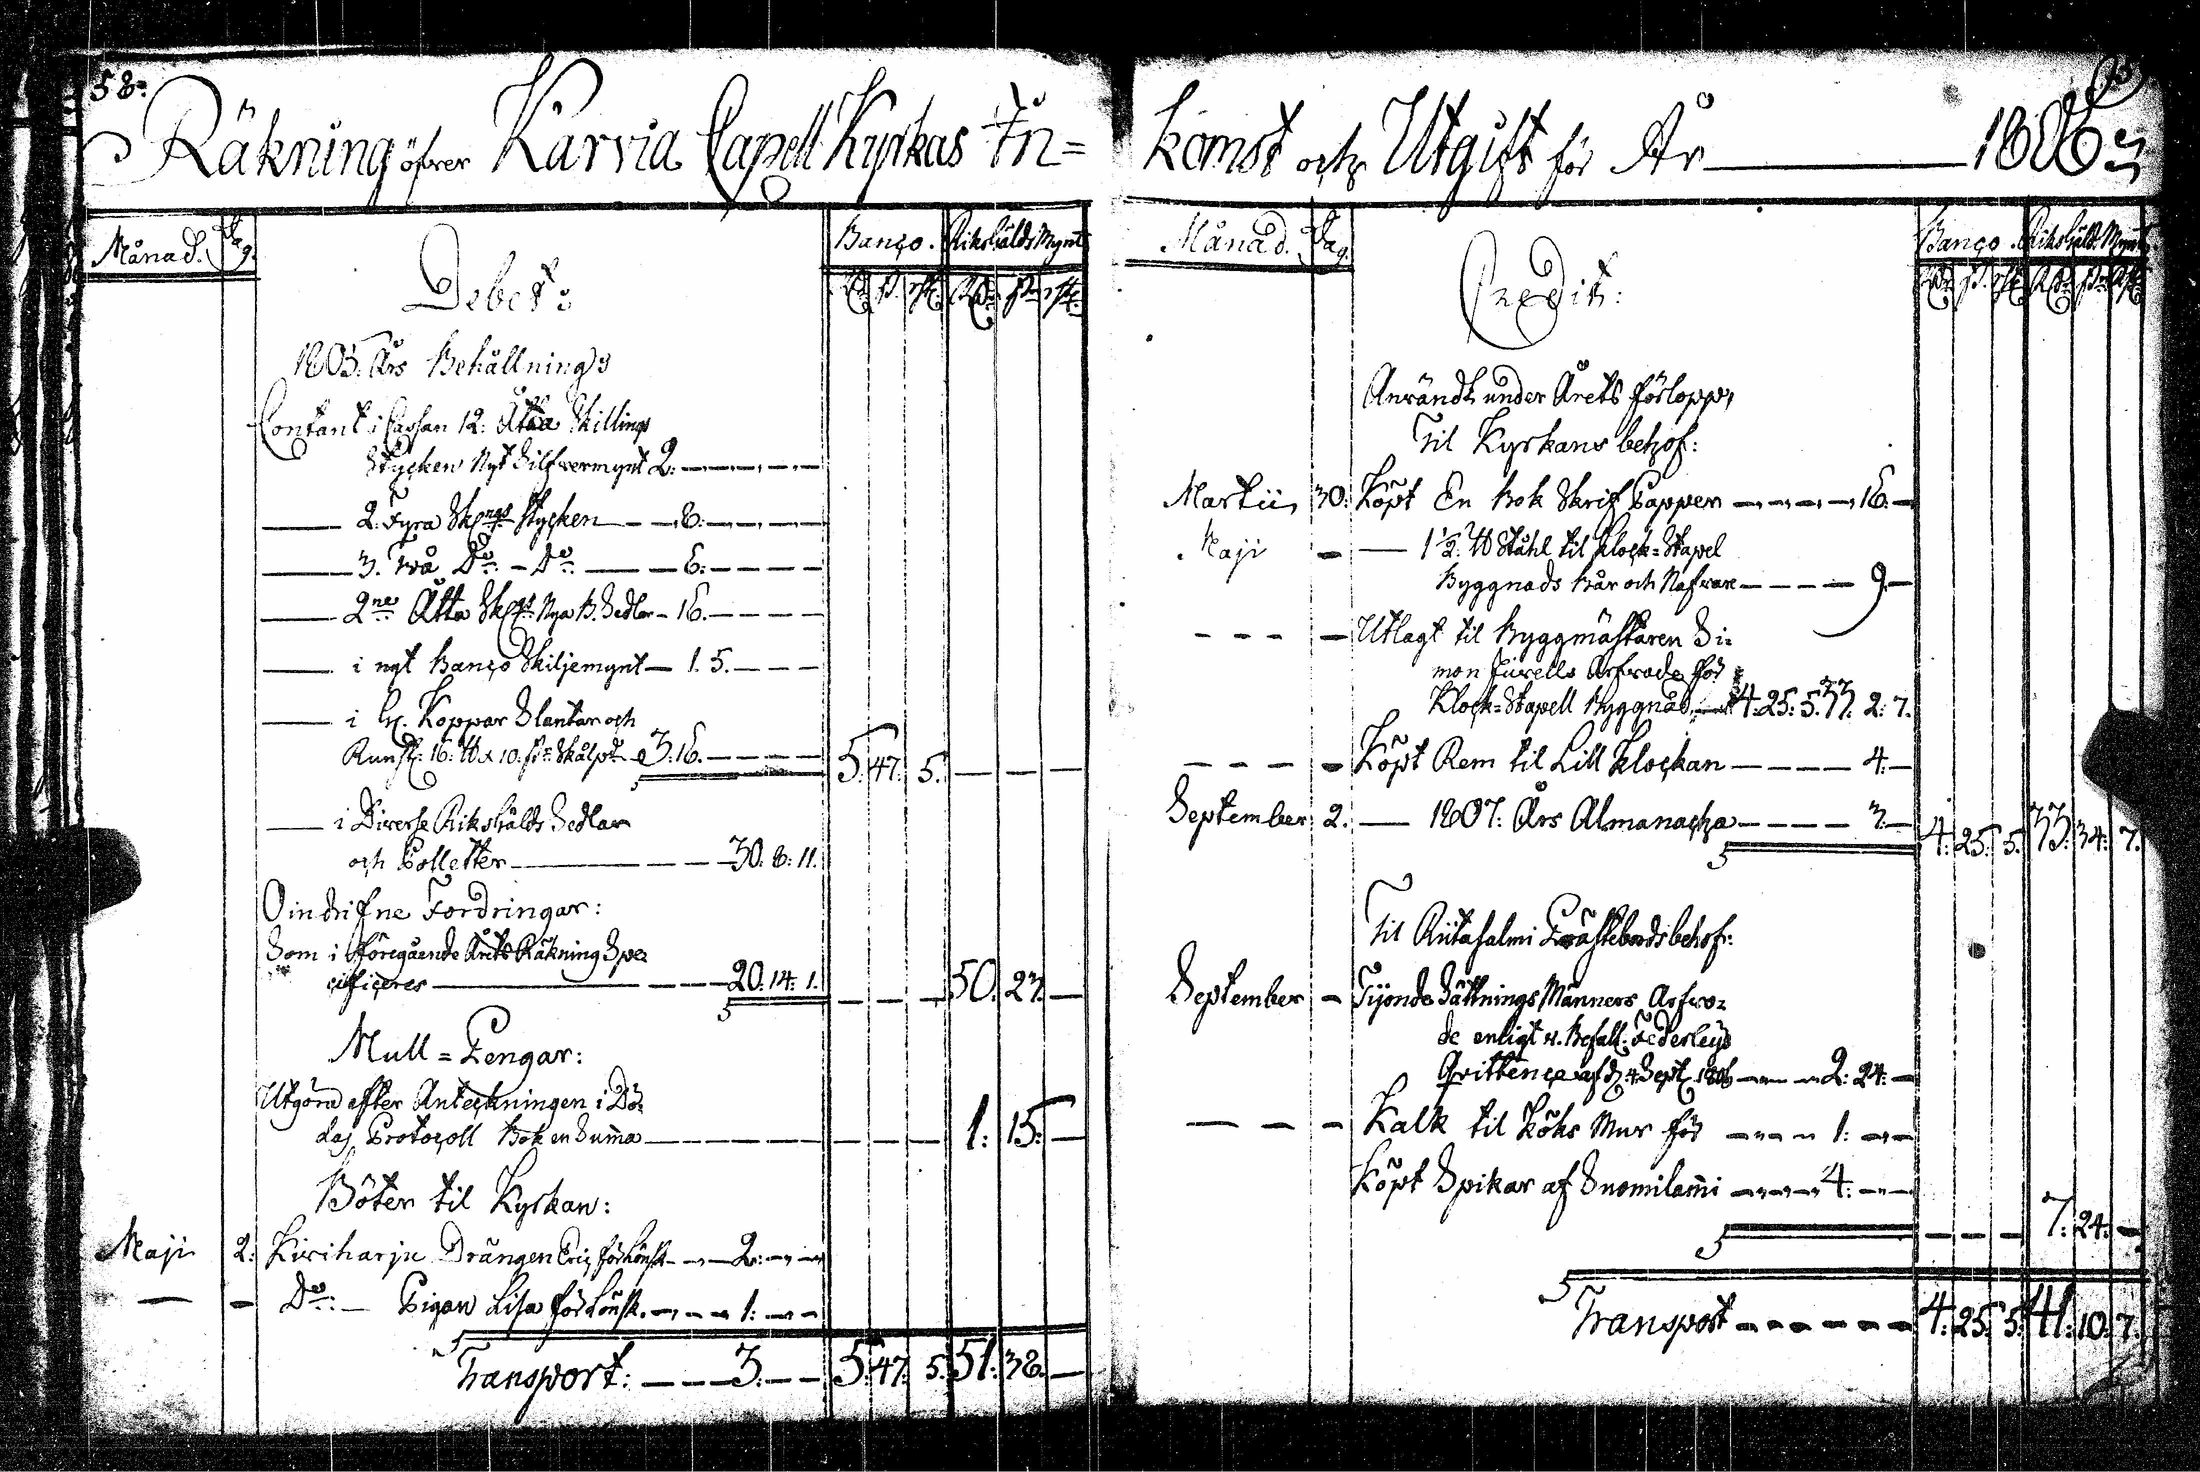 58.
Räkning öfver Karvia Capell Kyrkas In=
Månad. Dag. Banco. Riksgälds Mynt
Debet:
Rd. s. rst. Rd. s. rst.
1805. Års Behållning:
Contant i Cassan 12: Åtta Skillings
Stycken Nyt Silfvermynt 2:
2. Fyra Sk:ngs Stycken 8:
3. Två D:o D:o 6:
2ne Åtta Sk:gs Nya B. Sedlar 16.
i nyt Banco Skiljemynt 1. 5.
i Koppar Slantar och
Runst: 16. ℔ 10. Skålpd 3. 16. 5. 47. 5.
i Diverse Riksgälds Sedlar
och Polletter 30. 8. 11.
Oindrifne Fordringar:
Som i föregående Årets Räkning Spe=
cificeres 20. 14. 1. 50. 23.
Mull = Pengar:
Utgöra efter Anteckningen i Dö=
das Protocoll Bok en Summa 1. 15.
Böter til Kyrkan:
Maji 2: Kiviharju Drängen Eric för Lönsk. 2:
D:o Pigan Lisa för Lönsk. 1:
Transport: 3. 5. 47. 5. 51. 38.
komst och Utgift för År 1806
Månad. Dag. Banco. Riksgäld. Mynt
Credit:
Rd. s. rst. Rd. s. rst.
Användt under Årets förlopp,
Til Kyrkans behof:
Martii 30. Köpt En Bok Skrif Papper 16.
Maji 1½. ℔ Stahl til Klock=Stapel
Byggnads Bår och Nafvare 9.
Utlagt til Byggmästaren Si=
mon Jurells Arfvode för
Klock=Stapell Byggnad 4. 25. 5. 33. 2. 7.
Köpt Rem til Lill Klockan 4.
September 2. 1807. Års Almanacha 3. 4. 25. 5. 33. 34. 7.
Til Riitasalmi Prästebords behof:
September Tijonde Sättnings Männers Arfvo=
de enligt H. Befall. Federleys
Qvittence af d. 4 Sept. 1806 2. 24.
Kalk til Köks Mur för 1:
Köpt Spikar af Suomilammi 4.
7. 24.
Transport 4. 25. 5. 41. 10. 7.